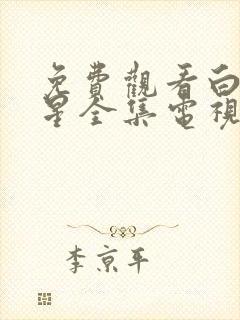 免費觀看白
星全集電視
李京平